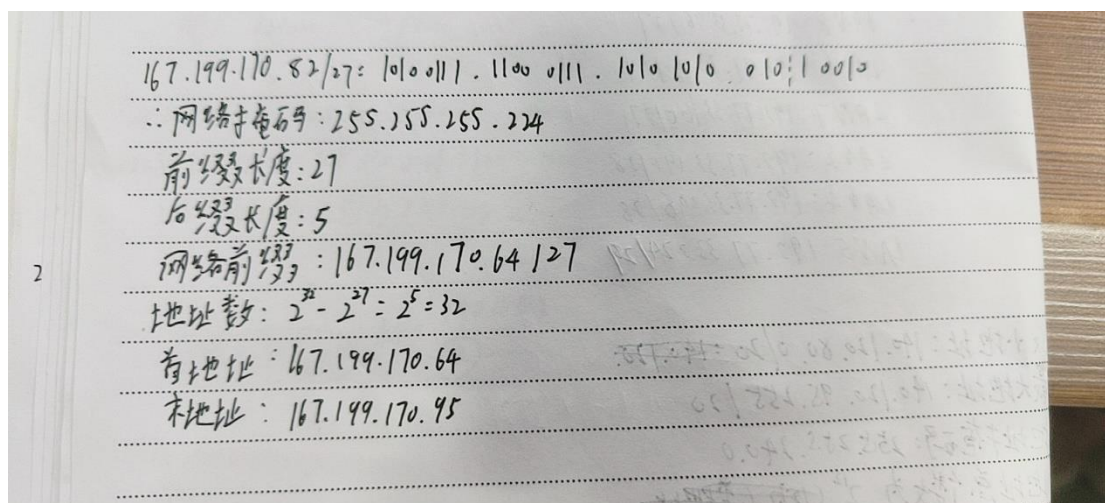 167.199.170.82/27: 1010 0111 . 1100 0111 . 1010 1010 . 010 1 0010
∴网络掩码: 255.255.255.224
前缀长度: 27
后缀长度: 5
网络前缀: 167.199.170.64/27
2
地址数: 2^32 - 2^27 = 2^5 = 32
首地址: 167.199.170.64
末地址: 167.199.170.95